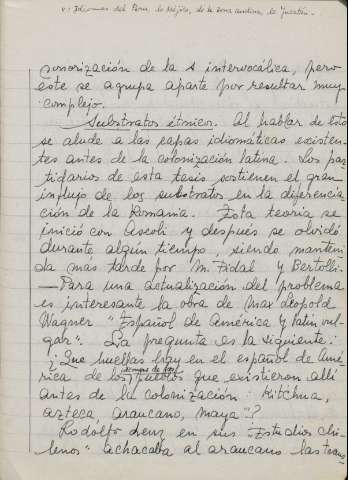 v. Idiomas del Perú, de Méjico, de la zona andina, de Yucatán.
sonorización de la s intervocálica, pero
este se agrupa aparte por resultar muy
complejo.
Substratos étnicos. Al hablar de esto
se alude a las capas idiomáticas existen-
tes antes de la colonización latina. Los par-
tidarios de esta tesis sostienen el gran
influjo de los substratos en la diferencia-
ción de la Romania. Esta teoría se
inició con Ascoli y después se olvidó
durante algún tiempo, siendo manteni-
da mas tarde por M. Pidal y Bertolli.
— Para una actualización del problema
es interesante la obra de Max Leopold
Wagner "Español de América y latín vul-
gar". La pregunta es la siguiente:
¿Que huellas hay en el español de Amé-
rica de los idiomas de los pueblos que existieron allí
antes de la colonización: kitchua,
azteca, araucano, maya"?
Rodolfo Lenz en sus "Estudios chi-
lenos" achacaba al araucano las trans